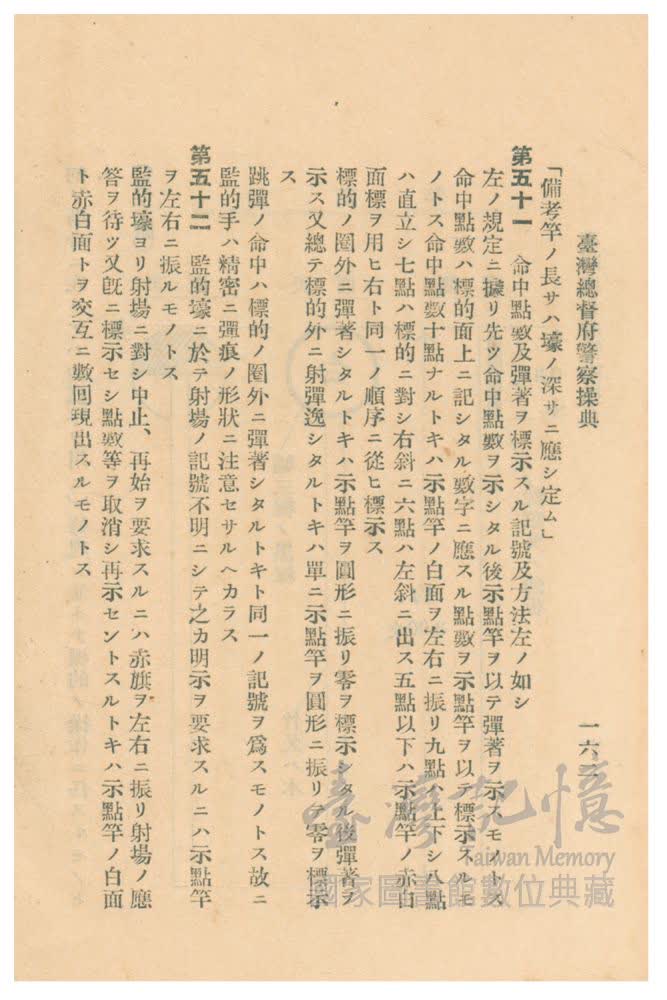 臺灣總督府警察操典
「備考竿ノ長サハ壕ノ深サニ應シ定ム」
第五十一 命中點數及彈著ヲ標示スル記號及方法左ノ如シ
左ノ規定ニ據リ先ツ命中點數ヲ示シタル後示點竿ヲ以テ彈著ヲ示スモノトス
命中點數ハ標的面上ニ記シタル數字ニ應スル點數ヲ示點竿ヲ以テ標示スルモ
ノトス命中點數十點ナルトキハ示點竿ノ白面ヲ左右ニ振リ九點ハ上下シ八點
ハ直立シ七點ハ標的ニ對シ右斜ニ六點ハ左斜ニ出ス五點以下ハ示點竿ノ赤白
面標ヲ用ヒ右ト同一ノ順序ニ從ヒ標示ス
標的ノ圏外ニ彈著シタルトキハ示點竿ヲ圓形ニ振リ零ヲ標示シタル後彈著ヲ
示ス又總テ標的外ニ射彈逸シタルトキハ單ニ示點竿ヲ圓形ニ振リテ零ヲ標示
ス
跳彈ノ命中ハ標的ノ圏外ニ彈著シタルトキト同一ノ記號ヲ爲スモノトス故ニ
監的手ハ精密ニ彈痕ノ形狀ニ注意セサルヘカラス
第五十二 監的壕ニ於テ射場ノ記號不明ニシテ之カ明示ヲ要求スルニハ示點竿
ヲ左右ニ振ルモノトス
監的壕ヨリ射場ニ對シ中止、再始ヲ要求スルニハ赤旗ヲ左右ニ振リ射場ノ應
答ヲ待ツ又既ニ標示セシ點數等ヲ取消シ再示セントスルトキハ示點竿ノ白面
ト赤白面トヲ交互ニ數回現出スルモノトス
一六
臺灣記憶
Taiwan Memory
國家圖書館數位典藏